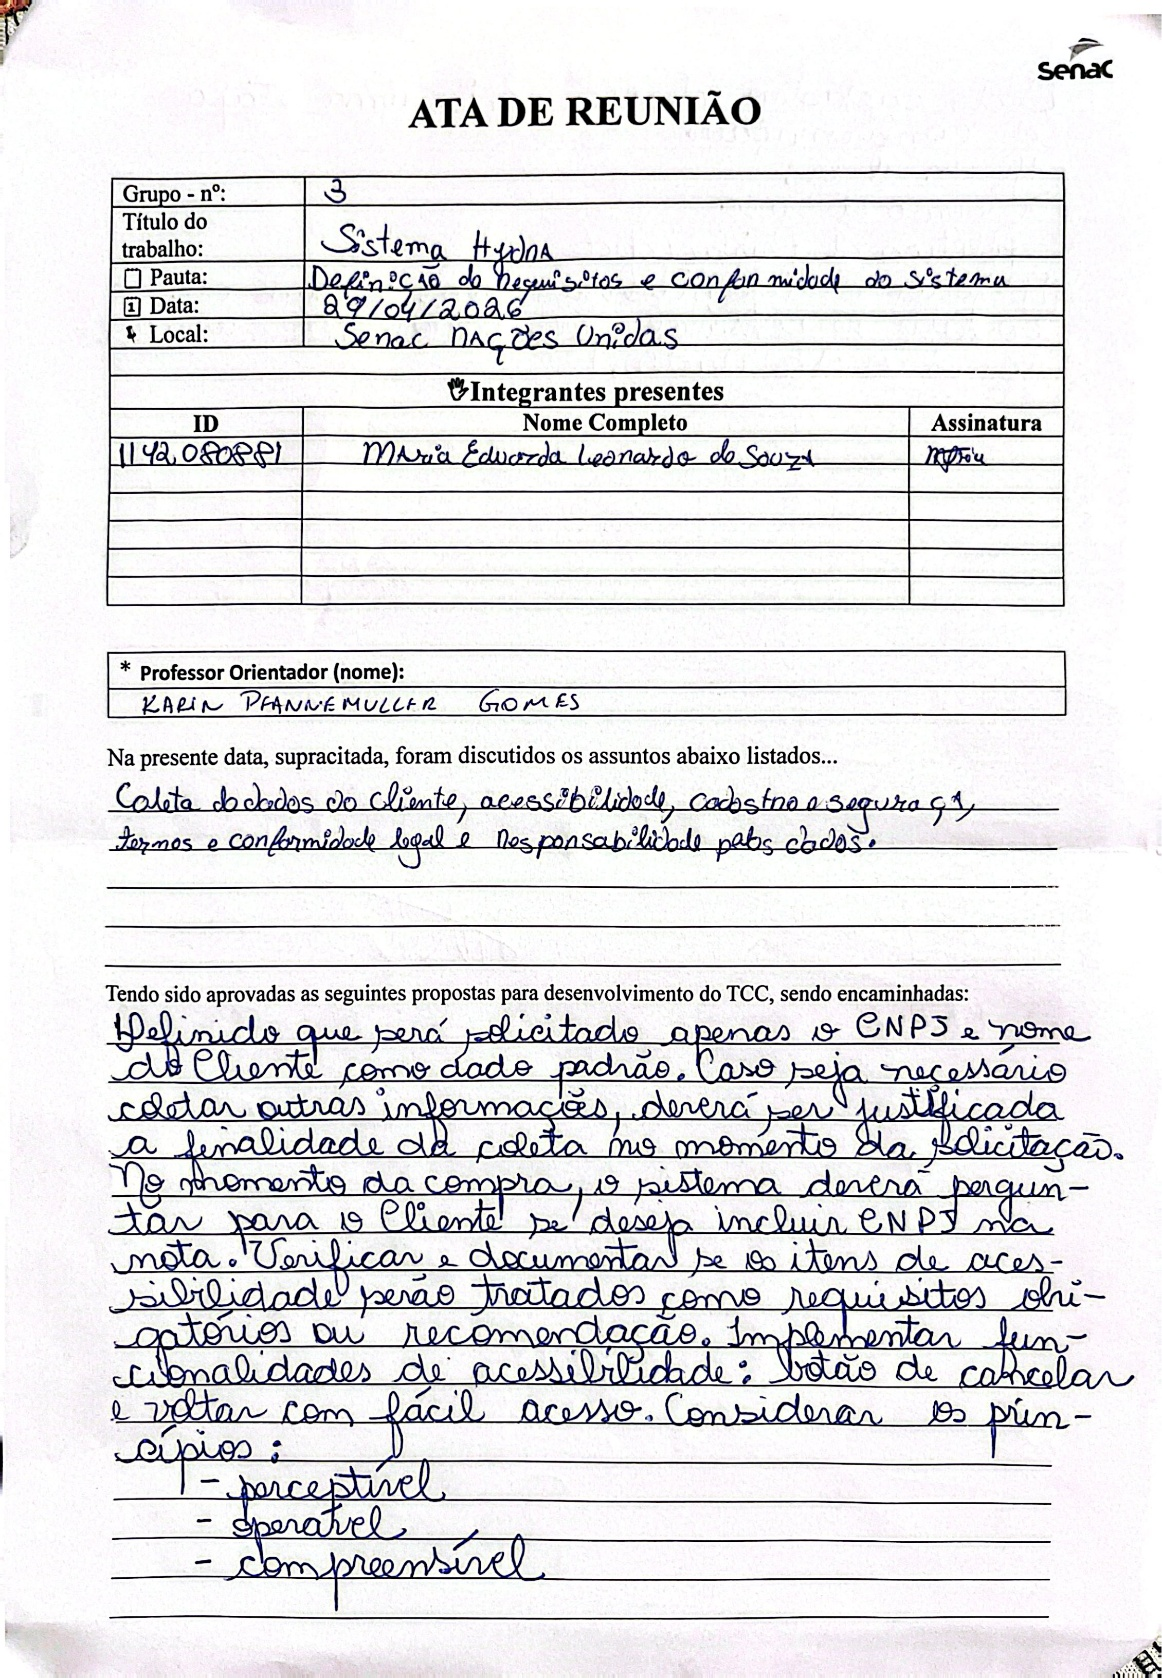 Senac
ATA DE REUNIÃO
Grupo - nº: 3
Título do
trabalho: Sistema Hydra
Pauta: Definição do Requisitos e conformidade do sistema
Data: 29/04/2026
Local: Senac Nações Unidas
Integrantes presentes
ID Nome Completo Assinatura
1142080881 Maria Eduarda Leonardo de Souza
* Professor Orientador (nome):
KARIN PFANNEMULLER GOMES
Na presente data, supracitada, foram discutidos os assuntos abaixo listados...
Coleta de dados do cliente, acessibilidade, cadastro e segurança,
termos e conformidade legal e responsabilidade pelos dados.
Tendo sido aprovadas as seguintes propostas para desenvolvimento do TCC, sendo encaminhadas:
Definido que será solicitado apenas o CNPJ e nome
do Cliente como dado padrão. Caso seja necessário
coletar outras informações, deverá ser justificada
a finalidade da coleta no momento da solicitação.
No momento da compra, o sistema deverá pergun-
tar para o Cliente se deseja incluir CNPJ na
nota. Verificar e documentar se os itens de aces-
sibilidade serão tratados como requisitos obri-
gatórios ou recomendação. Implementar fun-
cionalidades de acessibilidade: botão de cancelar
e voltar com fácil acesso. Considerar os prin-
cípios:
- perceptível
- operável
- compreensível